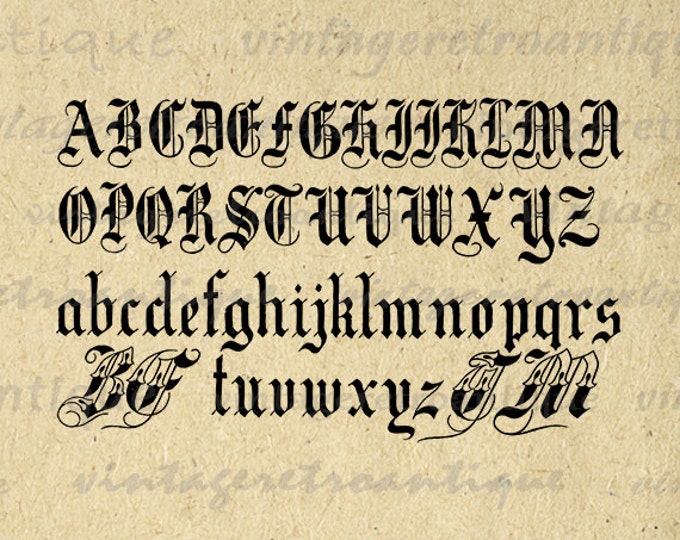 vintageretroantique
ABCDEFGHIJKLMN
OPQRSTUVWXYZ
abcdefghijklmnopqrs
tuvwxyz M
vintageretroantique